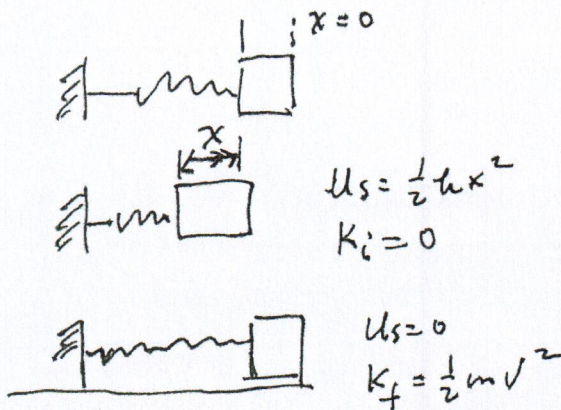 x=0
x
Us = ½ kx²
Ki = 0
Us=0
Kf = ½ mv²